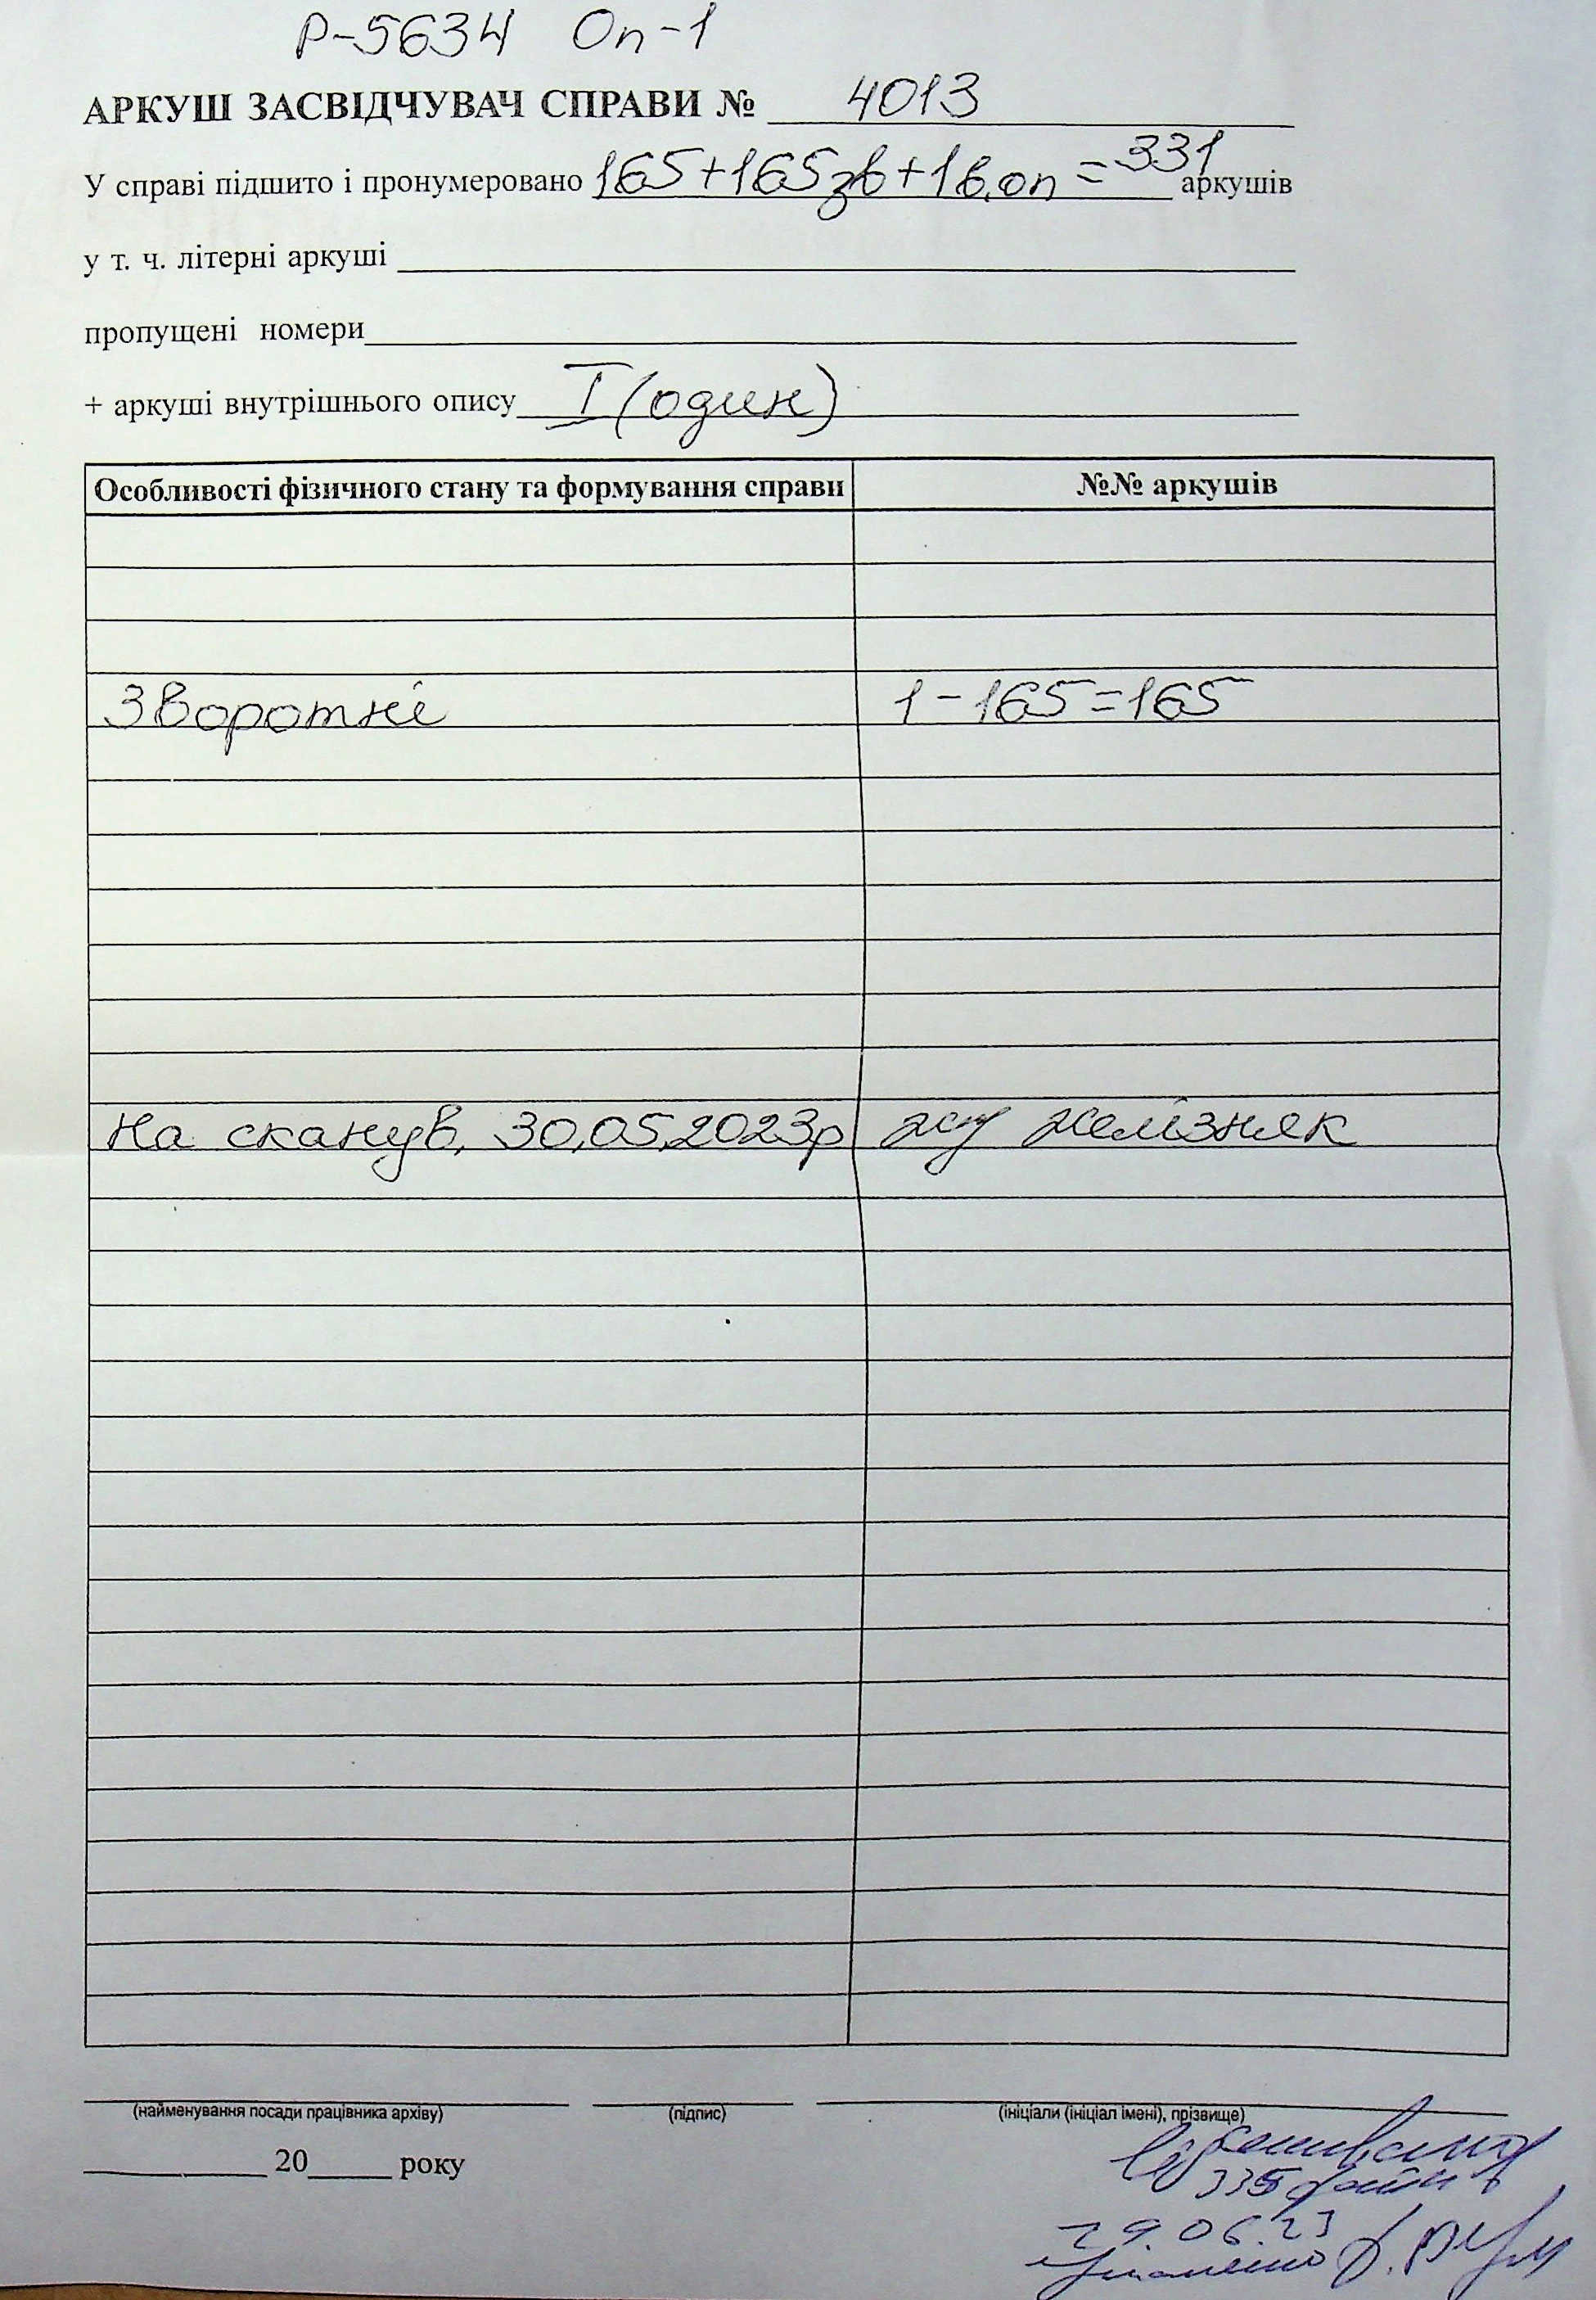 Р-5634 Оп-1
АРКУШ ЗАСВІДЧУВАЧ СПРАВИ № 4013
У справі підшито і пронумеровано 165+165зв+1в.оп=331 аркушів
у т. ч. літерні аркуші
пропущені номери
+ аркуші внутрішнього опису I (один)
Особливості фізичного стану та формування справи №№ аркушів
Зворотні 1-165=165
На сканув. 30.05.2023р Желізняк
(найменування посади працівника архіву) (підпис) (ініціали (ініціал імені), прізвище)
20 року
29.06.23